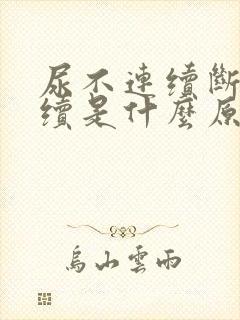 尿不連續斷
續是什麼原
烏山雲雨